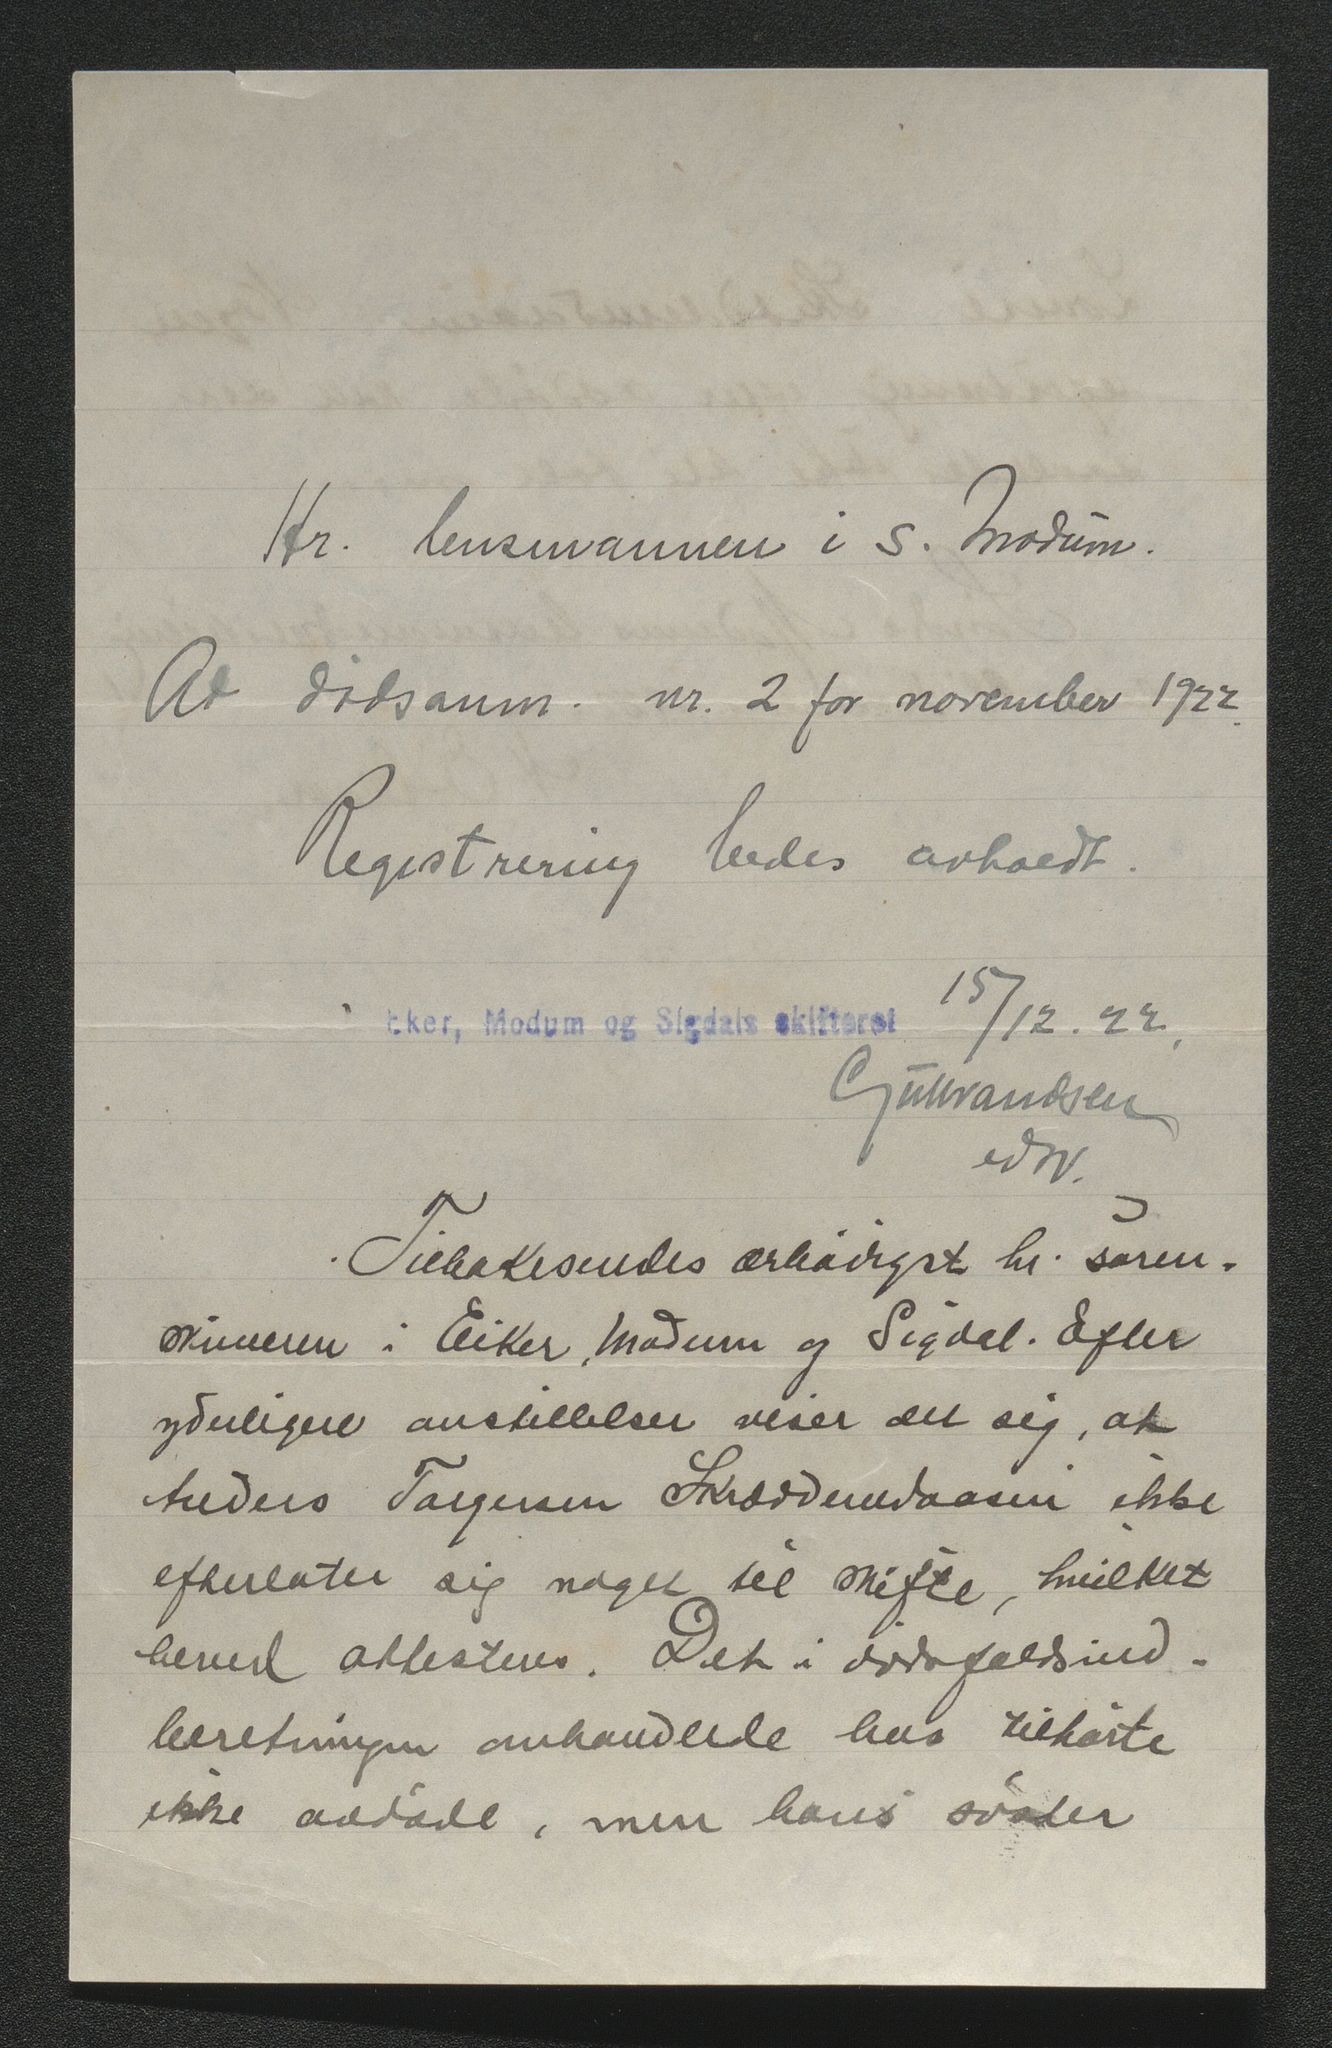 Hr. lensmannen i S. Modum.
Ad dødsanm. nr. 2 for november 1922.
Registrering bedes avholdt.
Eker, Modum og Sigdals skifteret 15/12. 22.
Gulbrandsen
edw.
Tilbakesendes ærbødigst hr. soren-
skriveren i Eiker, Modum og Sigdal. Efter
yderligere anstillelser viser det sig, at
Anders Torgersen Skrædderudaasen ikke
efterlater sig noget til skifte, hvilket
herved attesteres. Det i dødsfaldsind-
beretningen omhandlede hus tilhørte
ikke avdøde, men hans søster